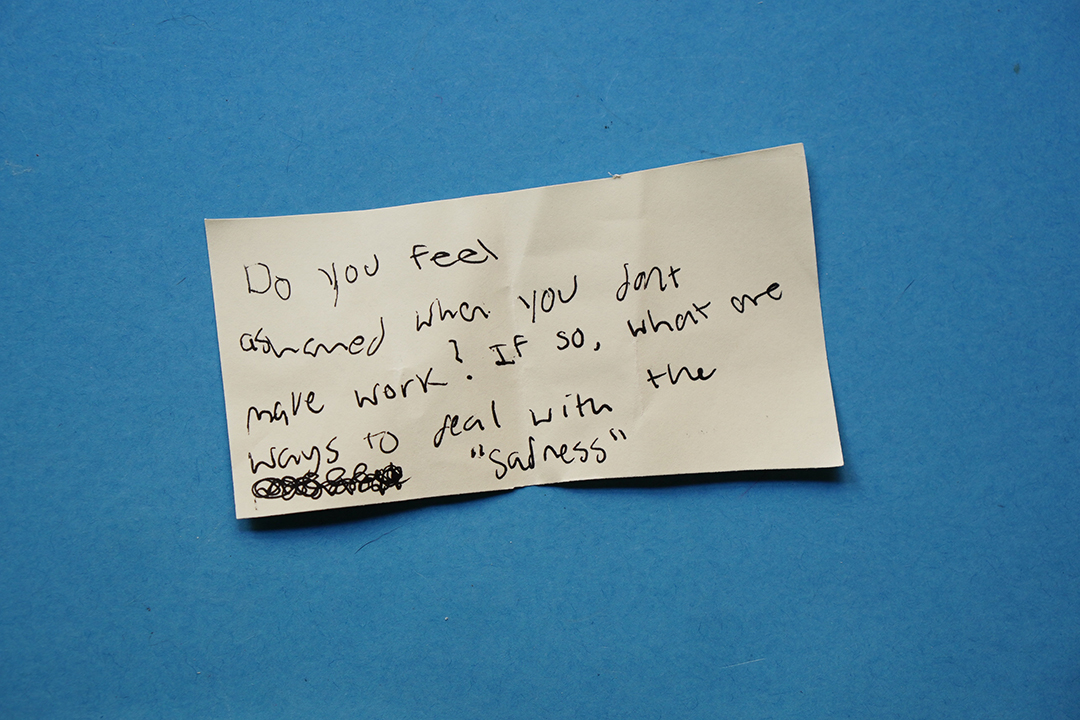 Do you feel
ashamed when you dont
make work? If so, what are
ways to deal with the
"sadness"